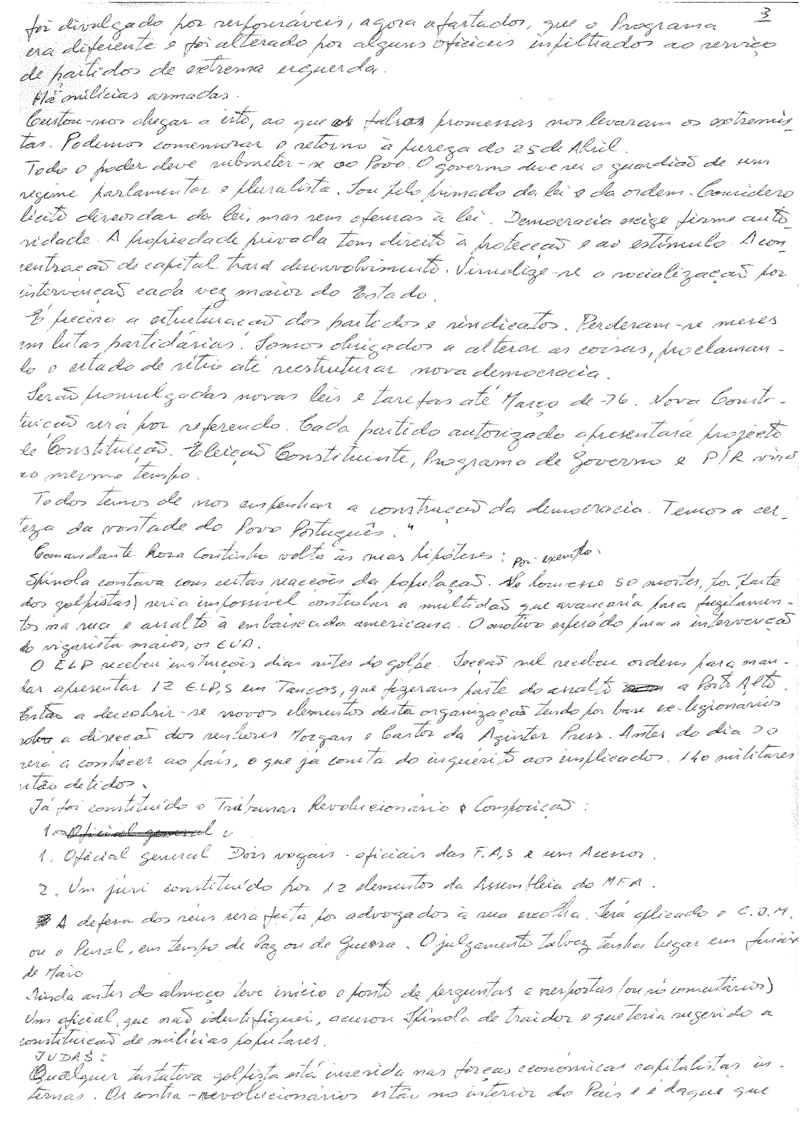 3
foi divulgado por responsáveis, agora afastados, que o Programa
era diferente e foi alterado por alguns oficiais infiltrados ao serviço
de partidos de extrema esquerda.
Há milícias armadas.
Custou-nos chegar a isto, ao que as falsas promessas nos levaram os extremis-
tas. Podemos comemorar o retorno à pureza do 25 de Abril.
Todo o poder deve submeter-se ao Povo. O governo deve ser o guardião de um
regime parlamentar e pluralista. Sou pelo primado da lei e da ordem. Considero
lícito discordar da lei, mas sem ofensas à lei. Democracia exige firme auto-
ridade. A propriedade privada tem direito à protecção e ao estímulo. A con-
centração de capital trará desenvolvimento. Visualize-se a socialização por
intervenção cada vez maior do Estado.
É precisa a estruturação dos partidos e sindicatos. Perderam-se meses
em lutas partidárias. Somos obrigados a alterar as coisas, proclaman-
do o estado de sítio até reestruturar nova democracia.
Serão promulgadas novas leis e tarefas até Março de -76. Nova Consti-
tuição será por referendo. Cada partido autorizado apresentará projecto
de Constituição. Eleição Constituinte, Programa de Governo e P/R
ao mesmo tempo.
Todos temos de nos empenhar a construção da democracia. Temos a cer-
teza da vontade do Povo Português."
Comandante Rosa Coutinho volta às suas hipóteses: Por exemplo.
Spínola contava com certas reacções da população. Se houvesse 50 mortes, (por parte
dos golpistas) seria impossível controlar a multidão que avançaria para fuzilamen-
tos na rua e assalto à embaixada americana. O motivo esperado para a intervenção
do vigarista maior, os EUA.
O ELP recebeu instruções dias antes do golpe. Secção sul recebeu ordens para man-
dar apresentar 12 ELP,S em Tancos, que fizeram parte do assalto a Porto Alto.
Estão a descobrir-se novos elementos desta organização tendo por base ex-legionários
sob a direcção dos senhores Morgan e Castor da Aginter Press. Antes do dia 20
será a conhecer ao país, o que já consta do inquérito aos implicados. 140 militares
estão detidos.
Já foi constituído o Tribunal Revolucionário e Composição:
1. Oficial general
1. Oficial general Dois vogais - oficiais das F.A,S e um Acessor.
2. Um júri constituído por 12 elementos da Assembleia do MFA.
A defesa dos réus será feita por advogados à sua escolha. Será aplicado o C.J.M.
ou o Penal, em tempo de Paz ou de Guerra. O julgamento talvez tenha lugar em
de Maio
Ainda antes do almoço teve início o ponto de perguntas e respostas (ou só comentários)
Um oficial, que não identifiquei, acusou Spínola de traidor e que teria sugerido a
constituição de milícias populares.
JUDAS:
Qualquer tentativa golpista está inserida nas forças económicas capitalistas in-
ternas. Os contra-revolucionários estão no interior do País e é daqui que